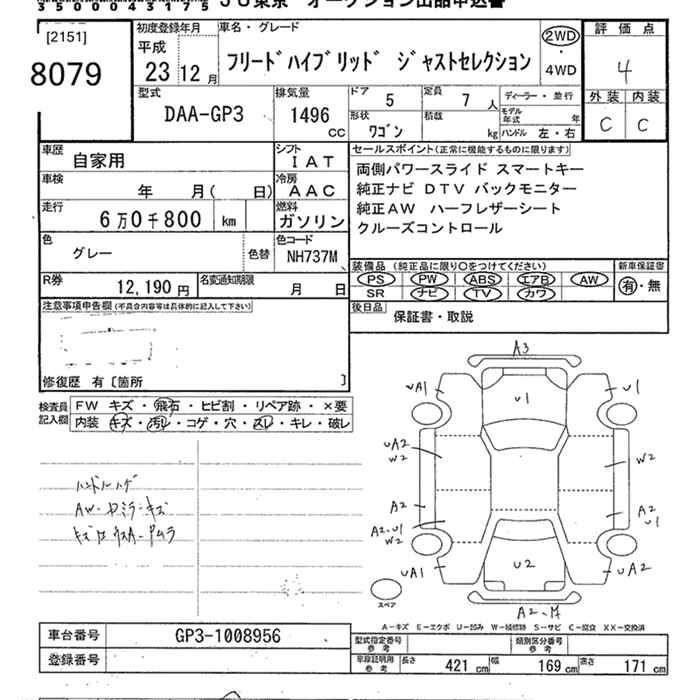 35000443175 JU東京 オークション出品申込書
[2151]
8079
初度登録年月
平成
23 12 月
車名・グレード
フリードハイブリッド ジャストセレクション
2WD
・
4WD
評価点
4
外装 内装
C C
型式
DAA-GP3
排気量
1496
CC
ドア 5
定員 7 人
形状 ワゴン
積載 kg
ディーラー・並行
モデル年式 年
ハンドル 左・右
車歴 自家用
シフト IAT
車検 年 月( 日)
冷房 AAC
走行 6万0千800 km
燃料 ガソリン
色 グレー 色替
色コード NH737M
R券 12,190 円
名変通知期限 月 日
セールスポイント(正常に機能するものに限ります)
両側パワースライド スマートキー
純正ナビ DTV バックモニター
純正AW ハーフレザーシート
クルーズコントロール
装備品(純正品に限り○をつけてください)
PS PW ABS エアB AW
SR ナビ TV カワ
新車保証書
有・無
後日品 保証書・取説
注意事項申告欄(不具合内容等は具体的に記入して下さい)
修復歴 有〔箇所 〕
検査員記入欄
FW キズ・飛石・ヒビ割・リペア跡・×要
内装 キズ・汚レ・コゲ・穴・スレ・キレ・破レ
ハンドルハゲ
AW・ドミラーキズ
A3
UA1
U1
U1
UA2
W2
W2
A2
A2
U1
A2・U1
W2
UA1
U2
UA2
スペア
A2
A-キズ E-エクボ U-凹み W-補修跡 S-サビ C-腐食 XX-交換済
車台番号 GP3-1008956
登録番号
型式指定番号 参考
類別区分番号 参考
車庫証明用 参考
長さ 421 cm
幅 169 cm
高さ 171 cm